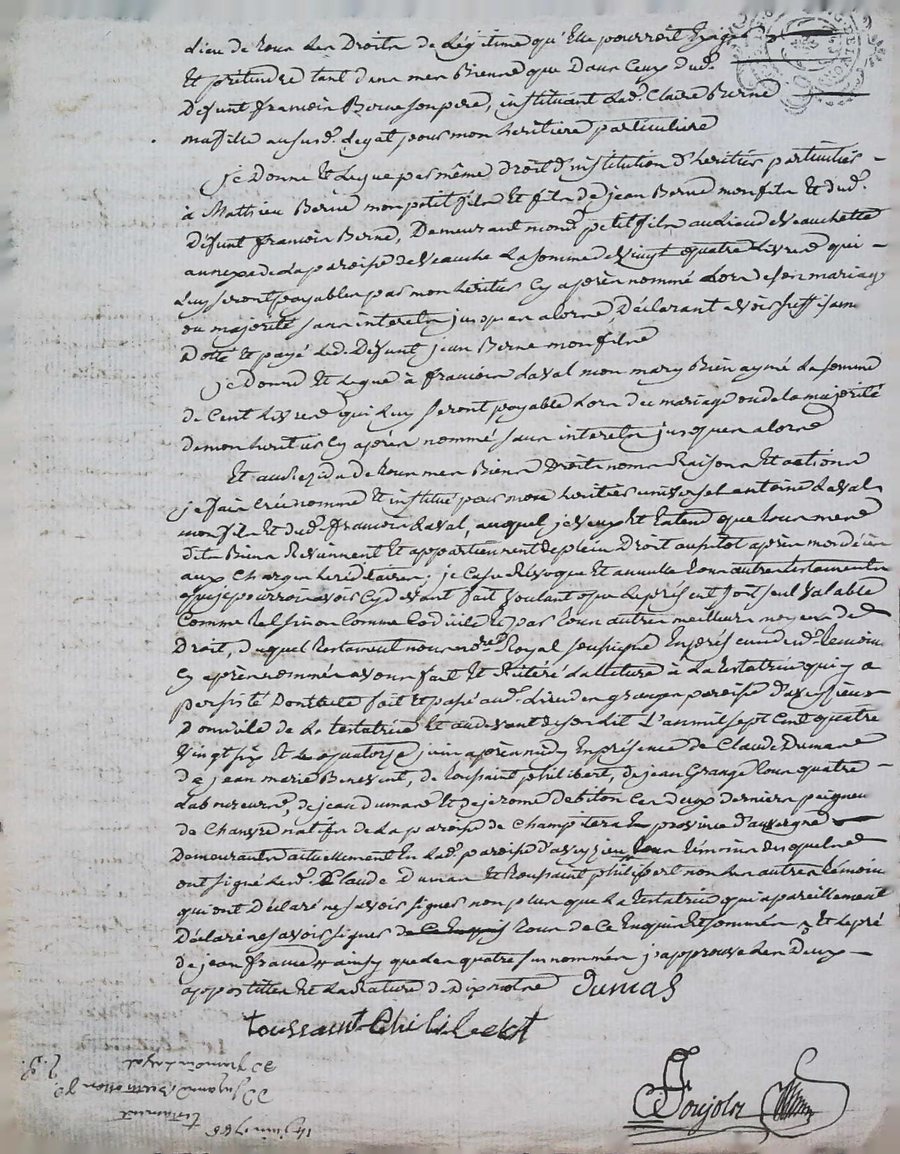 Lieu de tous les Droits de Légitime qu'Elle pourroit Exiger
Et prétendre tant dans mes Biens que Dans Ceux dud.
Défunt françois Berne son pere, instituant lad. Claire Berne
ma fille au susd. Legat pour mon heritiere particuliere
je Donne Et Legue par même Droit d'institution d'heritier particulier
à Mathieu Berne mon petit fils Et fils de jean Berne mon fils Et dud.
Défunt françois Berne, Demeurant mond. petit fils au Lieu de Veauchette
annexe de La paroisse de Veauche La somme de Vingt quatre Livres qui
Luy seront payables par mon heritier Cy après nommé Lors de son mariage
ou majorité sans interets jusques alors Déclarant avoir suffisam
Doté Et payé led. Défunt jean Berne mon fils
je Donne Et Legue à françois Laval mon mary Bien aymé La somme
de Cent Livres qui Luy seront payable Lors du mariage ou de la majorité
de mon heritier Cy après nommé sans interets jusques alors
Et au Residu de tous mes Biens Droits noms Raisons Et actions
je fais Créé nomme Et institue pour mon heritier universel antoine Laval
mon fils Et dud. françois Laval, auquel je Veux Et Entend que tous mes
dits Biens Reviennent Et appartiennent de plein Droit aussitot après mon décès
aux Charges hereditaires; je Casse Revoque Et annulle tous autres testaments
que je pourrois avoir Cy devant fait Voulant que Le présent soit seul Valable
Comme tel sinon Comme Codicile Et par tous autres meilleurs moyens de
Droit, duquel testament nous no.re Royal soussigné En présence des d. temoins
Cy après nommés avons fait Et Réiteré La Lecture à La testatrice qui y a
persisté Dont acte fait Et passé aud. Lieu des granges paroisse d'aveyzieux
Domicile de La testatrice Et au devant de son Lit L'an mil sept Cent quatre
Vingt six Et Le quatorze juin après midy En présence de Claude Dumas
de jean marie Benevent, de toussaint philibert, de jean Grange tous quatre
Laboureurs, de jean dumas Et de jerome debiton Ces deux derniers peigneur
de Chanvre natifs de La paroisse de Champ province d'auvergne
Demeurants actuellement En lad. paroisse d'aveyzieux tous témoins desquels
ont signé Led. Claude Dumas Et toussaint philibert non Les autres témoins
qui ont Déclaré ne savoir signer non plus que La testatrice qui a pareillement
Déclaré ne savoir signer de Ce Enquis tous de Ce Enquis Et sommés Et Le pré
de jean france ainsy que des quatre sus nommés j'approuve Les Deux
appostilles Et La Rature de Dix
Dumas
toussaint Philibert
Poujols
14 juin 1786
testament